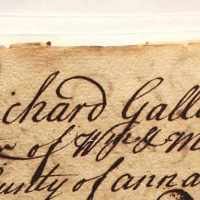 ichard Gall
of Wm & M
unty of anna